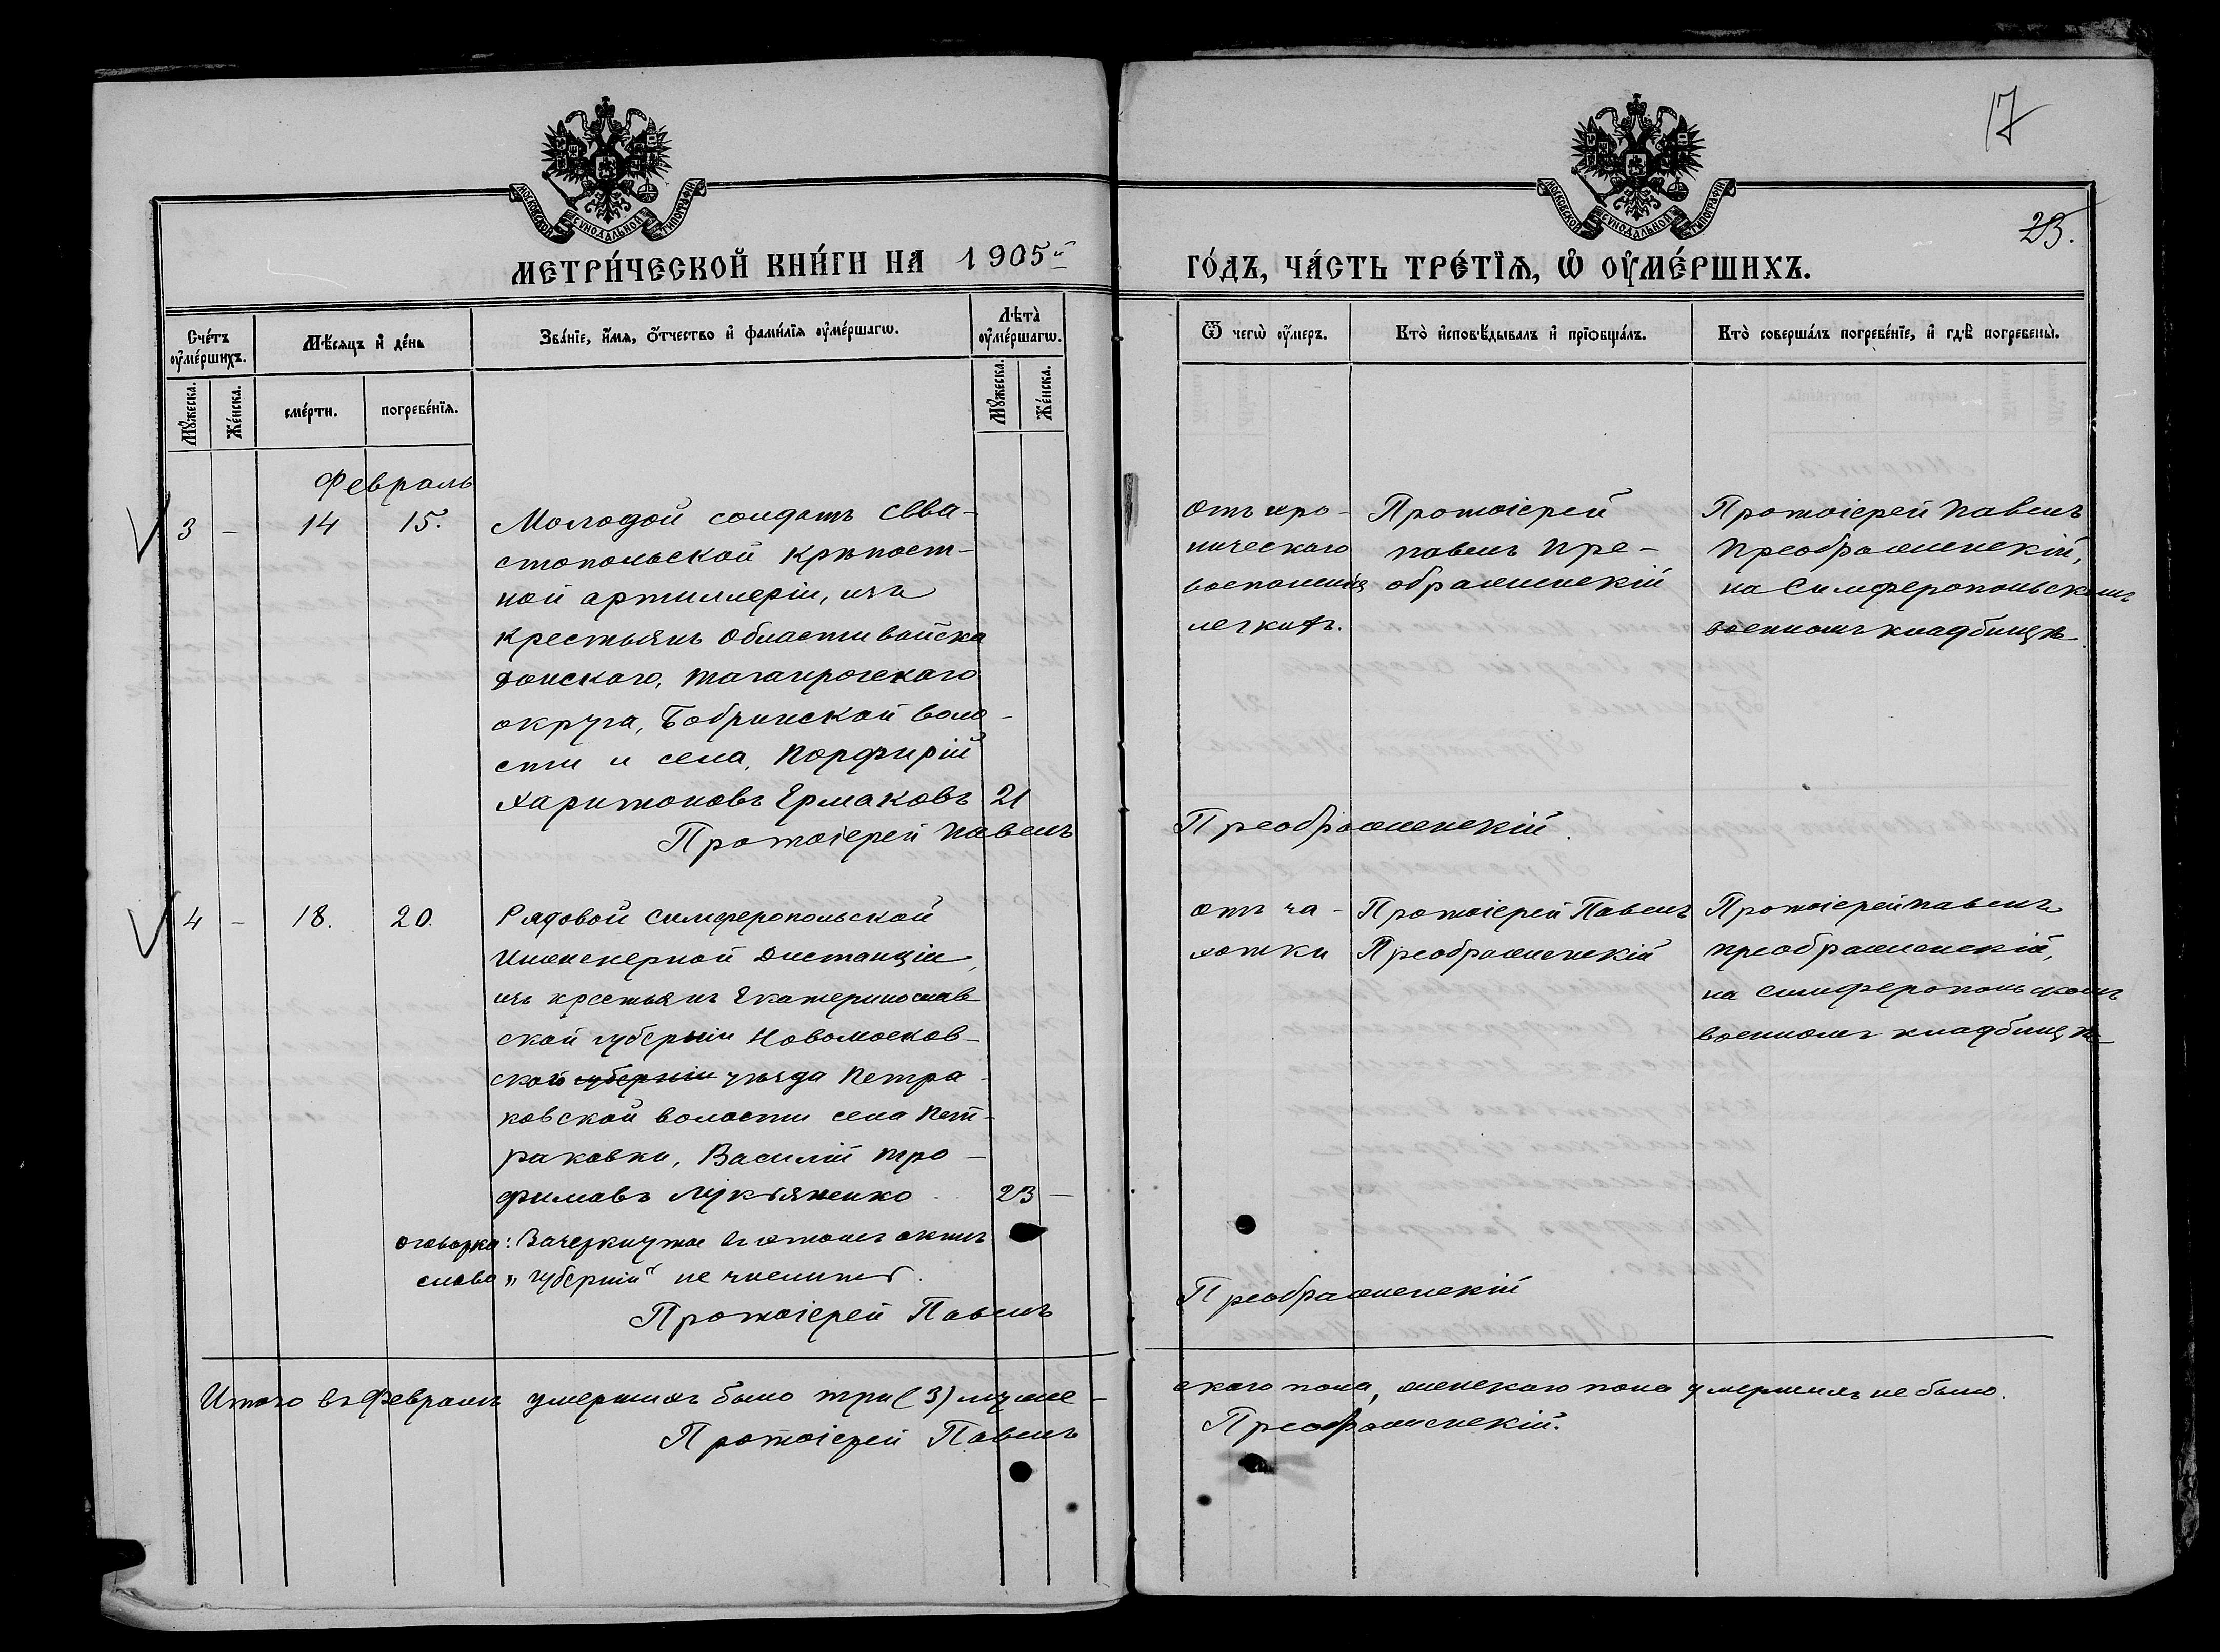 17
23.
МОСКОВСКОЙ СУНОДАЛЬНОЙ ТИПОГРАФІИ
МОСКОВСКОЙ СУНОДАЛЬНОЙ ТИПОГРАФІИ
МЕТРИ́ЧЕСКОЙ КНИ́ГИ НА 1905й ГО́ДЪ, ЧА́СТЬ ТРЕ́ТЇѦ, Ѡ҆ ОУ҆МЕ́РШИХЪ.
Сче́тъ оу҆ме́ршихъ.
Мѣ́сяцъ и҆ де́нь
Зва́нїе, и҆́мѧ, ѻ҆́тчество и҆ фами́лїѧ оу҆ме́ршагѡ.
Лѣта̀ оу҆ме́ршагѡ.
Ѿ чегѡ̀ оу҆́меръ.
Кто̀ и҆сповѣ́дывалъ и҆ прїѡбща́лъ.
Кто̀ соверша́лъ погребе́нїе, и҆ гдѣ̀ погребены̀.
Мꙋ́жеска.
Же́нска.
сме́рти.
погребе́нїѧ.
Мꙋ́жеска.
Же́нска.
Февраль
3 - 14 15. Молодой солдатъ Сева-
стопольской крѣпост-
ной артиллеріи, изъ
крестьянъ Области войска
Донского, Таганрогскаго
округа, Бобринской воло-
сти и села, Порфирій
Харитоновъ Ермаковъ 21
Отъ хро-
ническаго
воспаленія
легкихъ.
Протоіерей
Павелъ Пре-
ображенскій
Протоіерей Павелъ
Преображенскій,
на Симферопольскомъ
военномъ кладбищѣ.
Протоіерей Павелъ Преображенскій.
4 - 18. 20. Рядовой Симферопольской
Инженерной Дистанціи,
изъ крестьянъ Екатеринослав
ской губерніи Новомосков-
ской губерніи уѣзда Петра-
ковской волости села Пет-
раковки, Василій Тро-
фимовъ Лукьяненко 23 -
отъ ча-
хотки
Протоіерей Павелъ
Преображенскій
Протоіерей Павелъ
Преображенскій,
на Симферопольскомъ
военномъ кладбищѣ
оговорка: Зачеркнутое въ этомъ актѣ
слово „губерніи" не числить.
Протоіерей Павелъ Преображенскій
Итого въ Февралѣ умершихъ было три (3) муже-
скаго пола, женскаго пола умершихъ не было.
Протоіерей Павелъ Преображенскій.